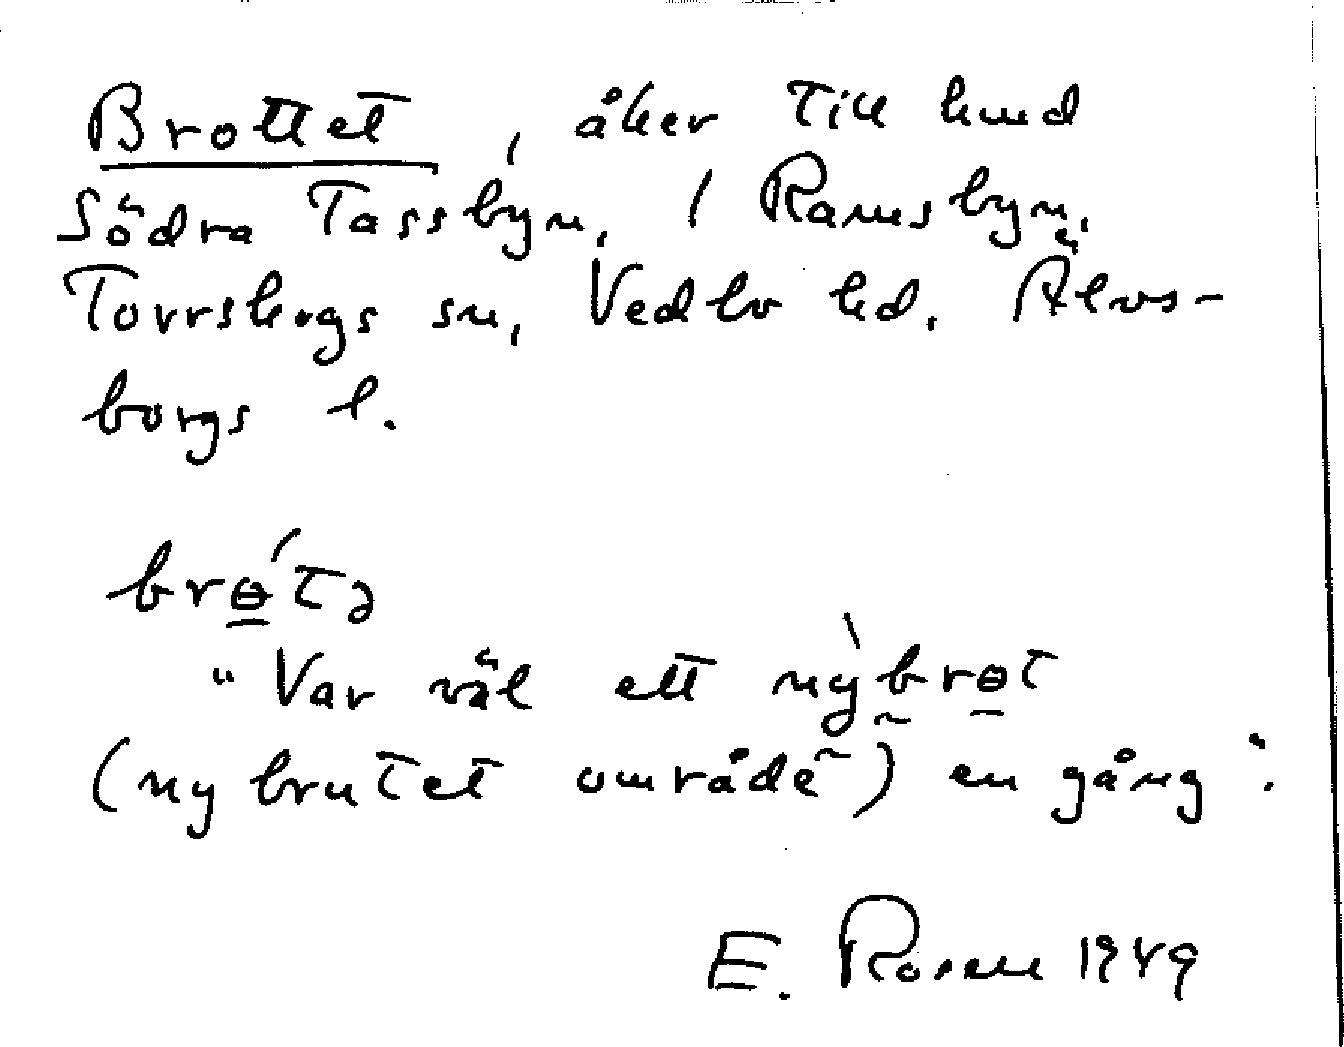 Brottet, åker till hmd
Södra Tassbyn, 1 Ramsbyn,
Torrskogs sn, Vedbo hd. Älvs-
borgs l.
brɵ́tə
"Var väl ett nỳbrɵt
(ny brutet område) en gång".
E. Rosell 1949